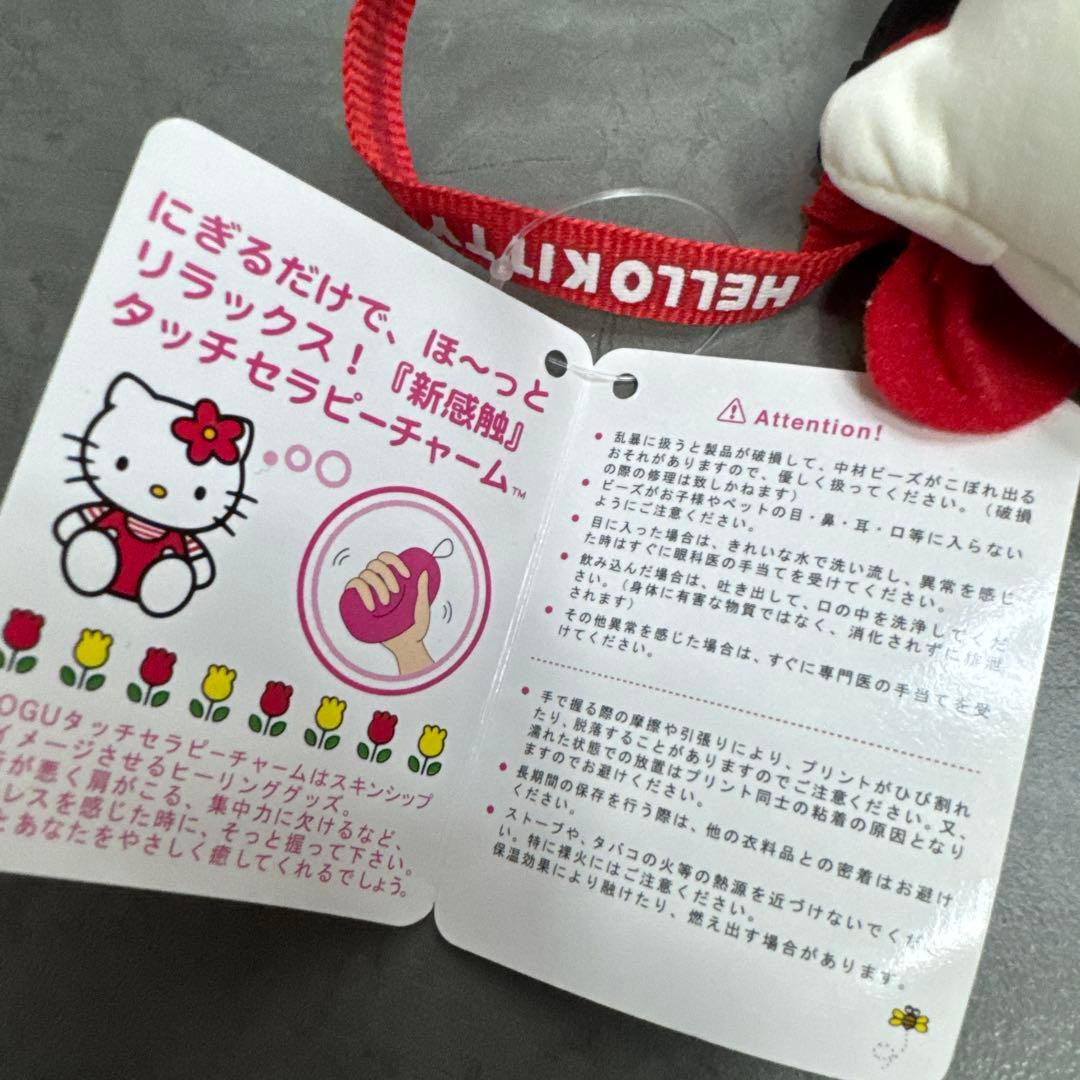 HELLO KITTY
にぎるだけで、ほ～っと
リラックス！『新感触』
タッチセラピーチャーム™
OGUタッチセラピーチャームはスキンシップ
イメージさせるヒーリンググッズ。
が悪く肩がこる、集中力に欠けるなど、
レスを感じた時に、そっと握って下さい。
とあなたをやさしく癒してくれるでしょう。
Attention!
• 乱暴に扱うと製品が破損して、中材ビーズがこぼれ出る
おそれがありますので、優しく扱ってください。（破損
の際の修理は致しかねます）
• ビーズがお子様やペットの目・鼻・耳・口等に入らない
ようにご注意ください。
• 目に入った場合は、きれいな水で洗い流し、異常を感じ
た時はすぐに眼科医の手当てを受けてください。
• 飲み込んだ場合は、吐き出して、口の中を洗浄してくだ
さい。（身体に有害な物質ではなく、消化されずに排泄
されます）
• その他異常を感じた場合は、すぐに専門医の手当てを受
けてください。
• 手で握る際の摩擦や引張りにより、プリントがひび割れ
たり、脱落することがありますのでご注意ください。又、
濡れた状態での放置はプリント同士の粘着の原因となり
ますのでお避けください。
• 長期間の保存を行う際は、他の衣料品との密着はお避け
ください。
• ストーブや、タバコの火等の熱源を近づけないでくだ
い。特に裸火にはご注意ください。
保温効果により融けたり、燃え出す場合があります。